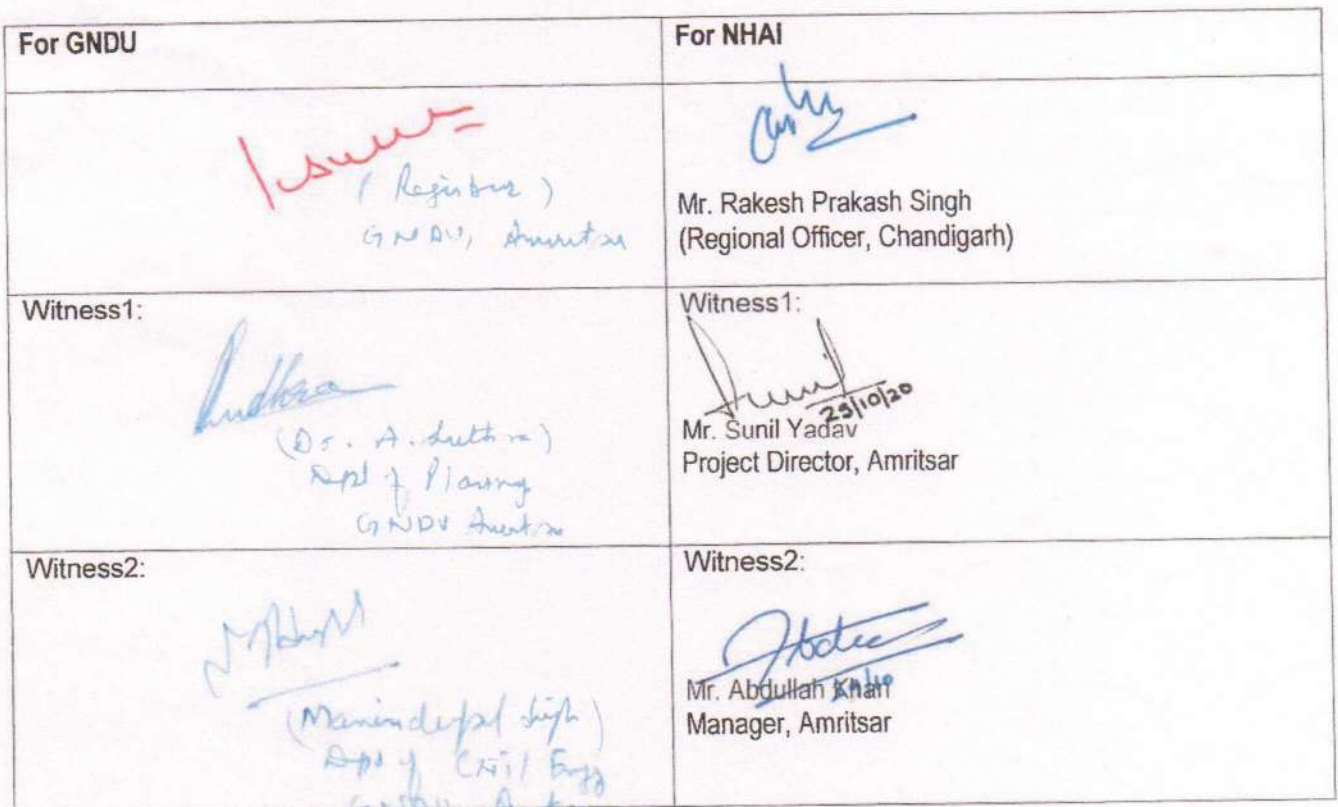 For GNDU
For NHAI
(Registrar)
GNDU, Amritsar
Mr. Rakesh Prakash Singh
(Regional Officer, Chandigarh)
Witness1:
Witness1:
(Dr. A. Luthra)
Dept of Planning
GNDU Amritsar
23/10/20
Mr. Sunil Yadav
Project Director, Amritsar
Witness2:
Witness2:
(Maninderpal Singh)
Dept of Civil Engg
GNDU
Mr. Abdullah Khan
Manager, Amritsar